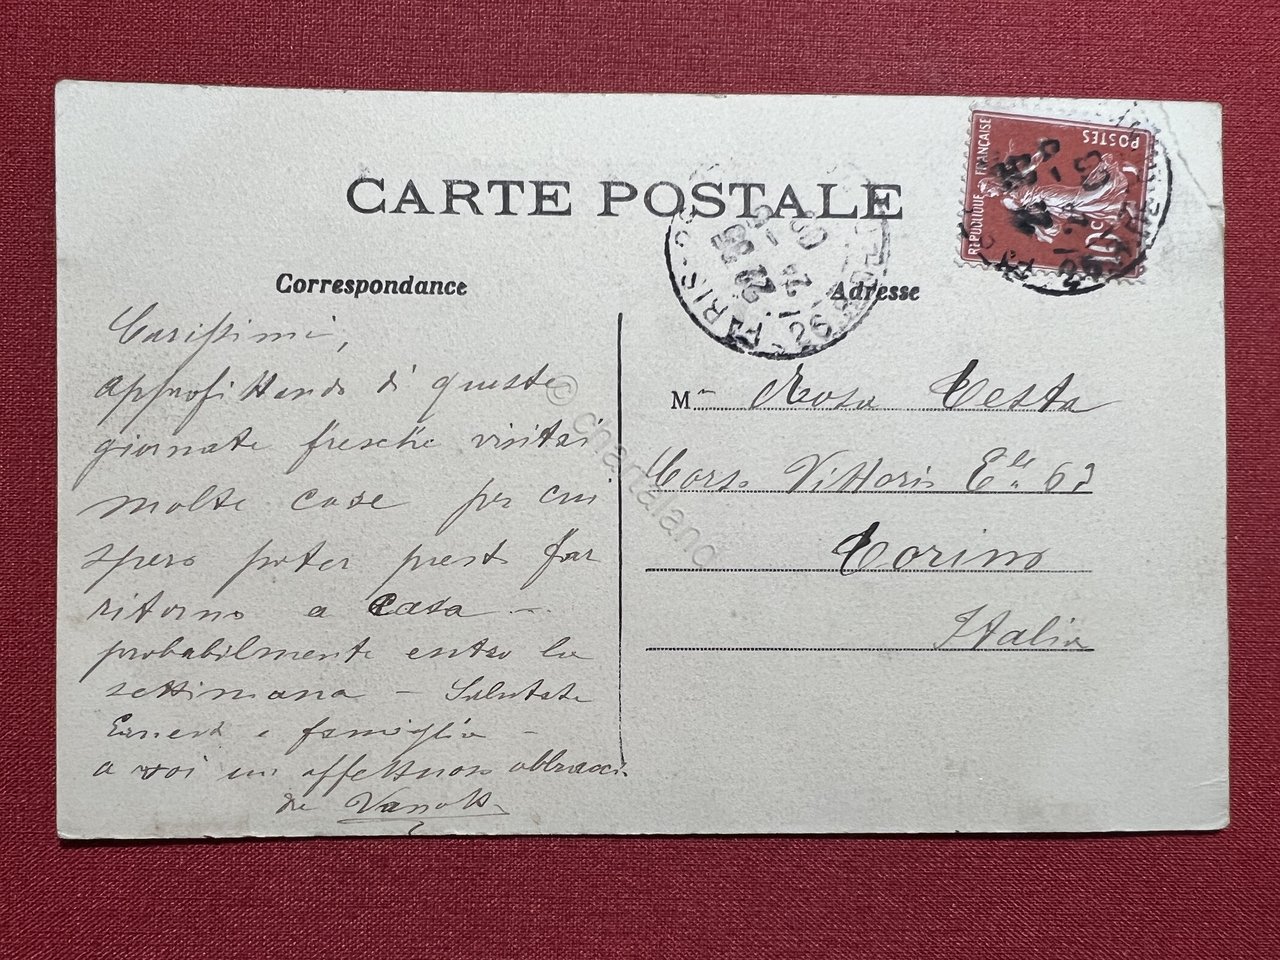 CARTE POSTALE
Correspondance
Adresse
Carissimi,
approfittando di queste
giornate fresche visitai
molte case per cui
spero poter presto far
ritorno a Casa —
probabilmente entro la
settimana — Salutate
e famiglia —
a voi un affettuoso abbraccio
Mr Rosa Testa
Corso Vittorio Ele 63
Torino
Italia
REPUBLIQUE FRANÇAISE
POSTES
10c
PARIS
© chartaland